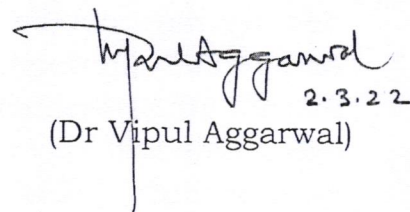 Vipul Aggarwal
2.3.22
(Dr Vipul Aggarwal)